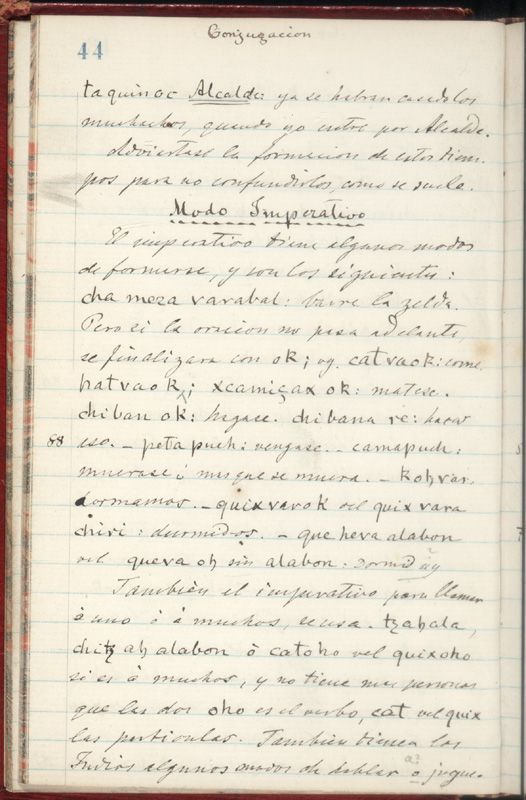 Conjugacion
44
taquinoc Alcalde: ya se habran casado los
muchachos, quando yo entre por Alcalde.
Adviertase la formacion de estos tiem-
pos para no confundirlos, como se suele.
Modo Imperativo
El imperativo tiene algunos modos
de formarse, y son los siguientes:
cha meza varabal: barre la zelda.
Pero si la oracion no pasa adelante,
se finalizara con ok; vg. catvaok: come.
hatvaok; xcamiçax ok: matese.
chiban ok: hagase. chibana re: haras
88 eso. - peta puch: vengase. - camapuch:
muerase ó mas que se muera. - Kohvar.
dormamos. - quixvarok vel quix vara
chiri: durmidos. - que heva alabon
vel queva oh sin alabon: dormid ay
También el imperativo para llamar
à uno ò à muchos, se usa. tzahala,
chitz ah alabon ò catoho vel quixoho
si es à muchos, y no tiene mas personas
que las dos oho es el verbo, cat vel quix
las particulas. Tambien tienen los
Indios algunos modos de hablar a jugue-